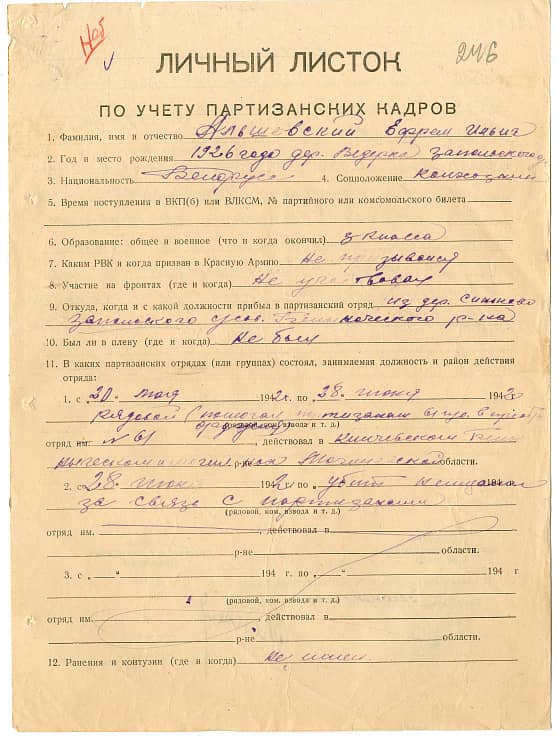 Неб
246
ЛИЧНЫЙ ЛИСТОК
ПО УЧЕТУ ПАРТИЗАНСКИХ КАДРОВ
1. Фамилия, имя и отчество Альшевский Ефрем Ильич
2. Год и место рождения 1926 года дер. Запольского
3. Национальность Белорус 4. Соцположение Колхозник
5. Время поступления в ВКП(б) или ВЛКСМ, № партийного или комсомольского билета
6. Образование: общее и военное (что и когда окончил) 3 класса
7. Каким РВК и когда призван в Красную Армию Не призывался
8. Участие на фронтах (где и когда) Не участвовал
9. Откуда, когда и с какой должности прибыл в партизанский отряд из дер.
Запольского р-на
10. Был ли в плену (где и когда) Не был
11. В каких партизанских отрядах (или группах) состоял, занимаемая должность и район действия
отряда:
1. с „20“ мая 1942 г. по „28“ июня 1942
Рядовой (помогал партизанам
(рядовой, ком. взвода и т. д.)
отряд им. № 61, действовал в Кличевском
р-не Могилевской области.
2. с „28“ 1942 г. по „ убит немцами 194
за связь с партизанами
(рядовой, ком. взвода и т. д.)
отряд им. , действовал в
р-не области.
3. с „ “ 194 г. по „ “ 194 г.
(рядовой, ком. взвода и т. д.)
отряд им. , действовал в
р-не области.
12. Ранения и контузии (где и когда) не имел.